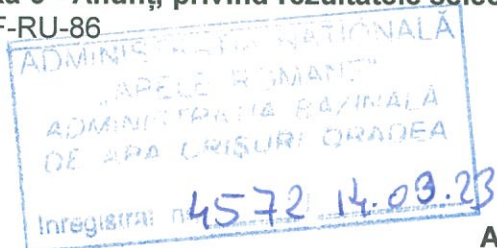 Anunț, privind rezultatele
F-RU-86
ADMINISTRAȚIA NAȚIONALĂ
„APELE ROMÂNE"
ADMINISTRAȚIA BAZINALĂ
DE APĂ CRIȘURI ORADEA
Inregistrat 4572 14.03.23
A